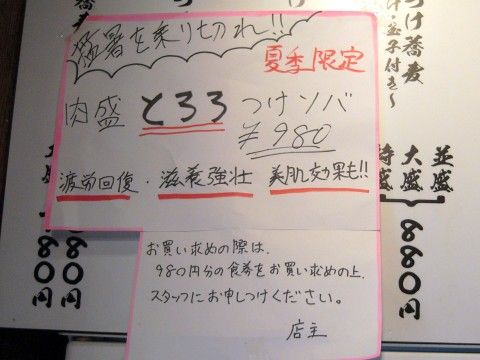 猛暑を乗り切れ!!
夏季限定
肉盛 とろろ つけソバ
¥980
疲労回復・滋養強壮 美肌効果も!!
お買い求めの際は、
980円分の食券をお買い求めの上、
スタッフにお申しつけください。
店主
つけ蕎麦
玉子付き〜
並盛
大盛
880円
880円